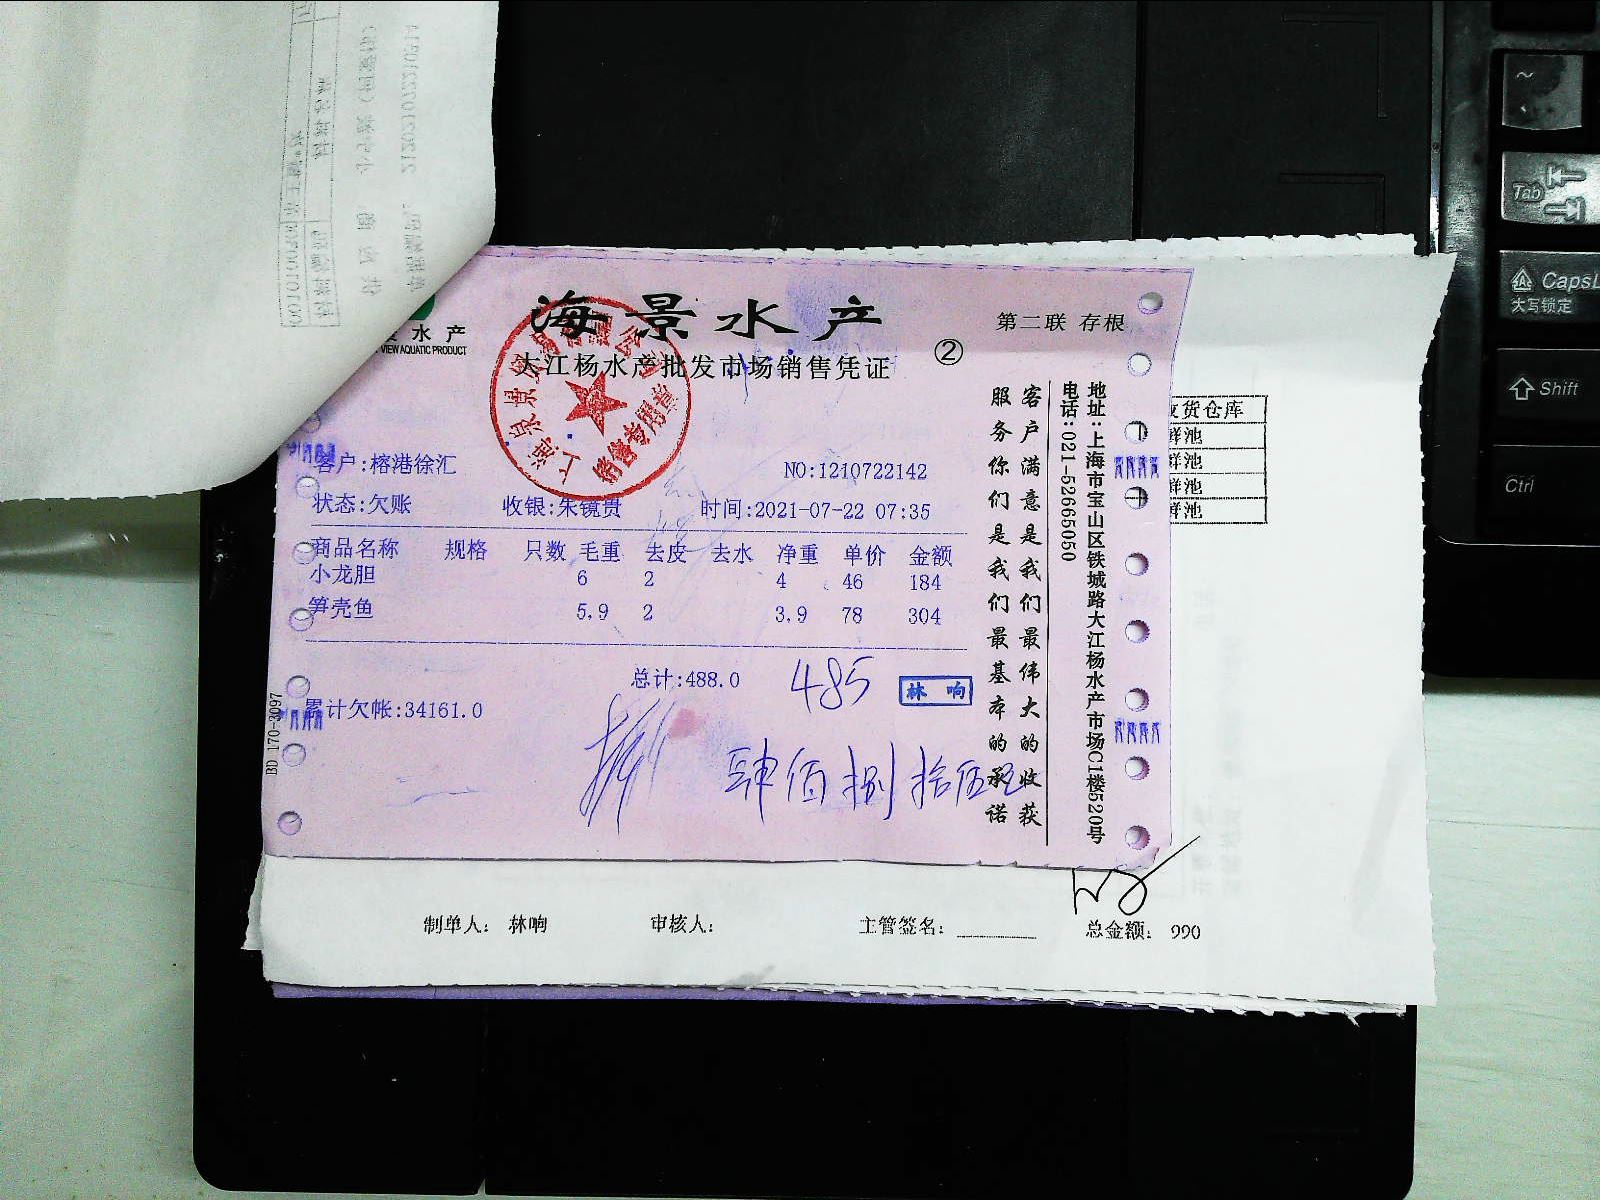 海景水产
水产
VIEW AQUATIC PRODUCT
第二联 存根
②
大江杨水产批发市场销售凭证
客户:榕港徐汇
NO:1210722142
状态:欠账 收银:朱镜贵 时间:2021-07-22 07:35
商品名称 规格 只数 毛重 去皮 去水 净重 单价 金额
小龙胆 6 2 4 46 184
笋壳鱼 5.9 2 3.9 78 304
总计:488.0 485
林响
累计欠帐:34161.0
肆佰捌拾伍元
BD 170-3097
客户满意是我们最伟大的收获
服务你们是我们最基本的承诺
地址:上海市宝山区铁城路大江杨水产市场C1楼520号
电话:021-52665050
货仓库
鲜池
鲜池
鲜池
鲜池
制单人: 林响 审核人: 主管签名: 总金额: 990
~
Tab
CapsL
大写锁定
Shift
Ctrl